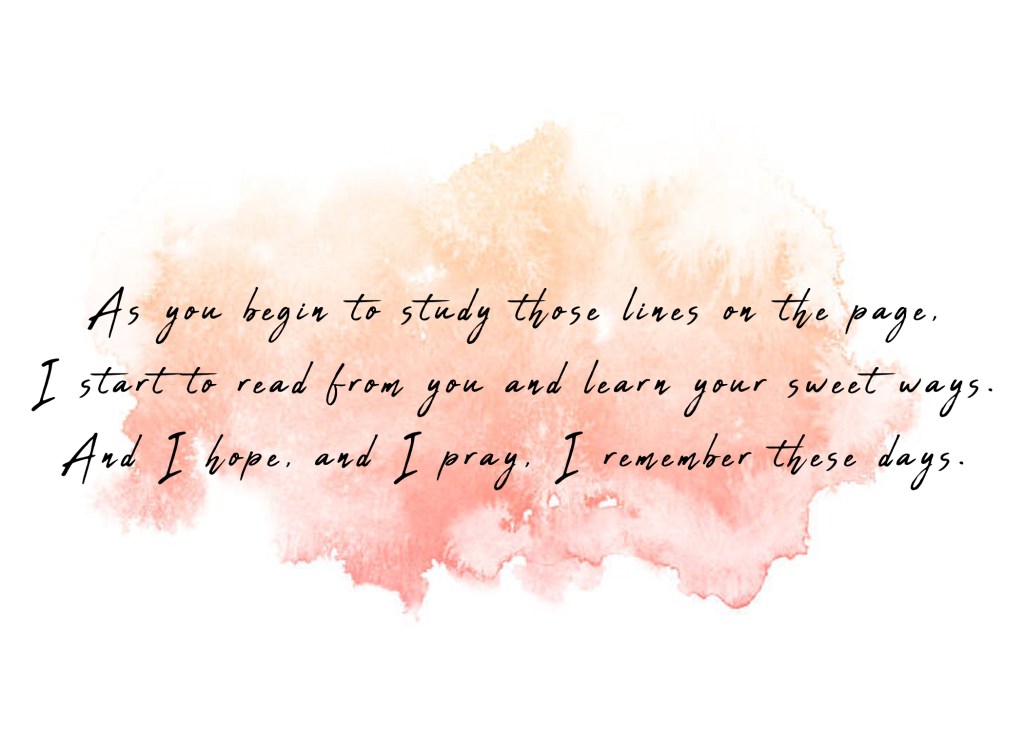 As you begin to study those lines on the page,
I start to read from you and learn your sweet ways.
And I hope, and I pray, I remember these days.